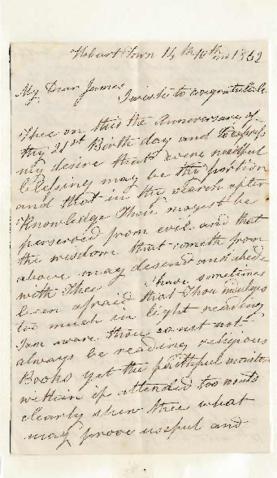 Hobart Town 14th 10th m 1862
My Dear James
I wish to congratulate
Thee on this the Anniversary of
thy 21st Birth day and to express
my desire that every needful
blessing may be thy portion
and that in the search after
Knowledge Thou mayest be
preserved from evil and that
the wisdom that cometh from
above may descend and abide
with Thee I have sometimes
been afraid that Thou indulges
too much in light reading
I am aware thou canst not
always be reading religious
Books yet the faithful monitor
within if attended too must
clearly shew thee what
may prove useful and